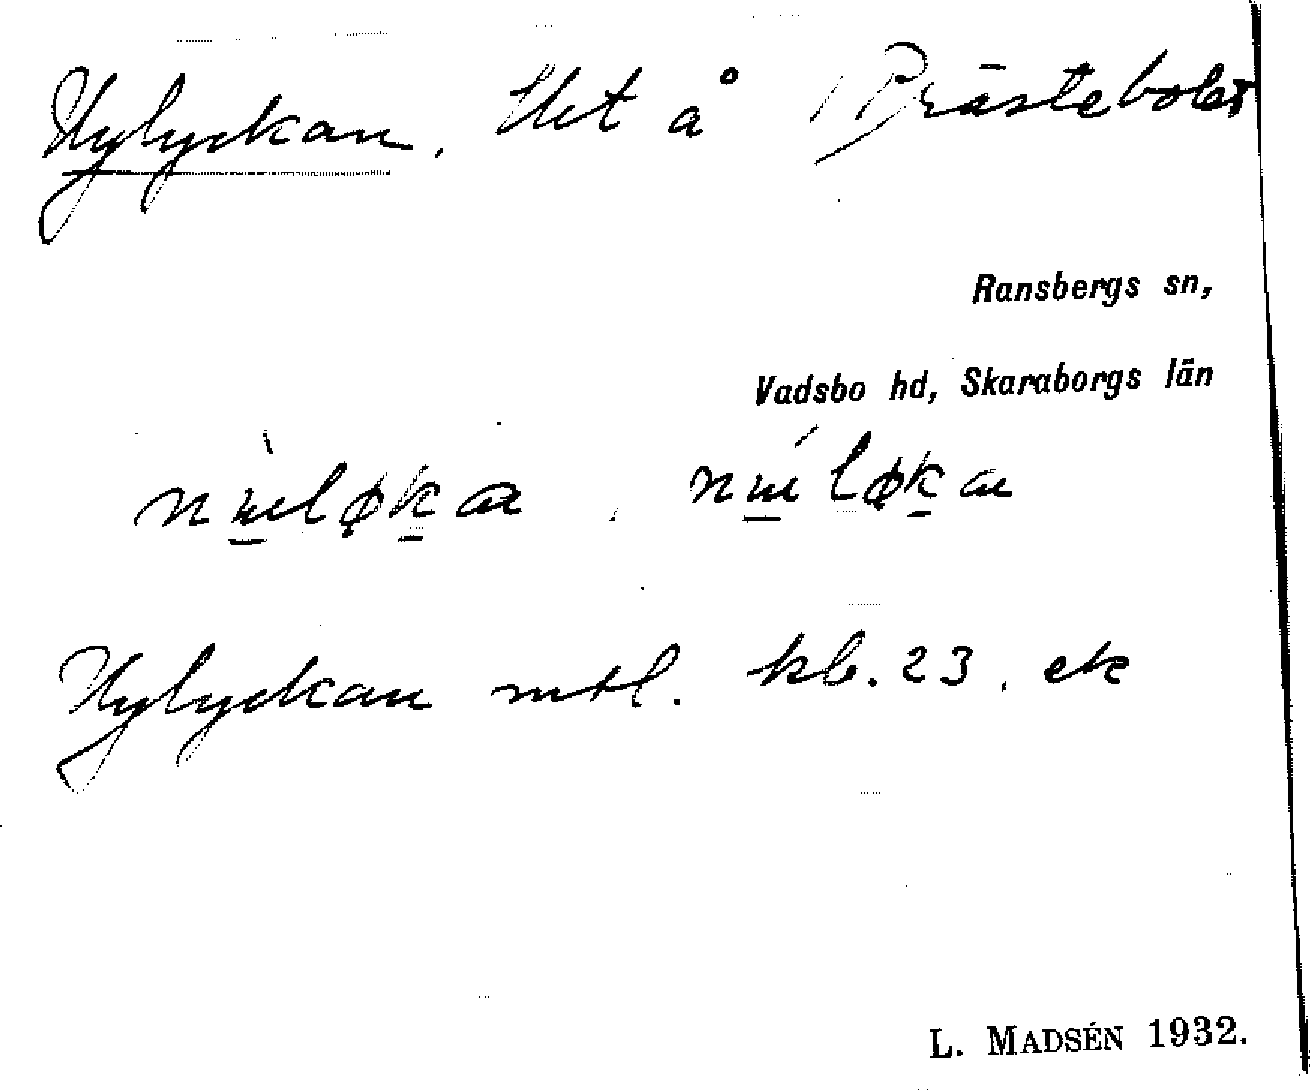 Nylyckan. Uet å Prästebolet
Ransbergs sn,
Vadsbo hd, Skaraborgs län
Nylyckan mtl. kb. 23. ek
L. MADSÉN 1932.